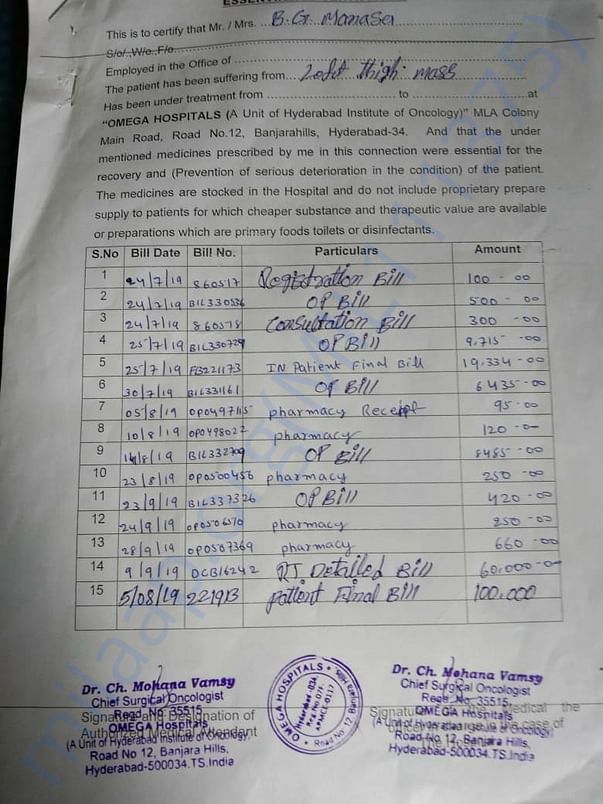 This is to certify that Mr. / Mrs. ... B.G. Manasa
S/o/.,W/o.,F/o
Employed in the Office of
The patient has been suffering from... Left thigh mass
Has been under treatment from ... to ... at
"OMEGA HOSPITALS (A Unit of Hyderabad Institute of Oncology)" MLA Colony
Main Road, Road No.12, Banjarahills, Hyderabad-34. And that the under
mentioned medicines prescribed by me in this connection were essential for the
recovery and (Prevention of serious deterioration in the condition) of the patient.
The medicines are stocked in the Hospital and do not include proprietary prepare
supply to patients for which cheaper substance and therapeutic value are available
or preparations which are primary foods toilets or disinfectants.
S.No Bill Date Bill No. Particulars Amount
1 24/7/19 860517 Registration Bill 100-00
2 24/7/19 BIL330536 OP Bill 500-00
3 24/7/19 860518 Consultation Bill 300-00
4 25/7/19 BIL330729 OP Bill 9,715-00
5 25/7/19 FB221173 IN Patient Final Bill 19,334-00
6 30/7/19 BIL331161 OP Bill 6435-00
7 05/8/19 OP0497115 pharmacy Receipt 95-00
8 10/8/19 OP0498022 pharmacy 120-00
9 14/8/19 BIL332709 OP Bill 8485-00
10 23/8/19 OP0500456 pharmacy 250-00
11 23/9/19 BIL337326 OP Bill 420-00
12 24/9/19 OP0506570 pharmacy 250-00
13 28/9/19 OP0507369 pharmacy 660-00
14 9/9/19 OCB16242 RT Detailed Bill 60,000-0
15 5/08/19 221913 patient Final Bill 100,000
Dr. Ch. Mohana Vamsy
Chief Surgical Oncologist
Regd. No. 35515
Signature and Designation of
OMEGA Hospitals
Authorized Medical Attendant
(A Unit of Hyderabad Institute of Oncology)
Road No 12, Banjara Hills,
Hyderabad-500034.TS.India
OMEGA HOSPITALS
Road No 12, Banjara Hills
Dr. Ch. Mohana Vamsy
Chief Surgical Oncologist
Regd. No. 35515
Signature of the Medical the
OMEGA Hospitals
in the case of
(A Unit of Hyderabad Institute of Oncology)
Road No 12, Banjara Hills,
Hyderabad-500034.TS.India